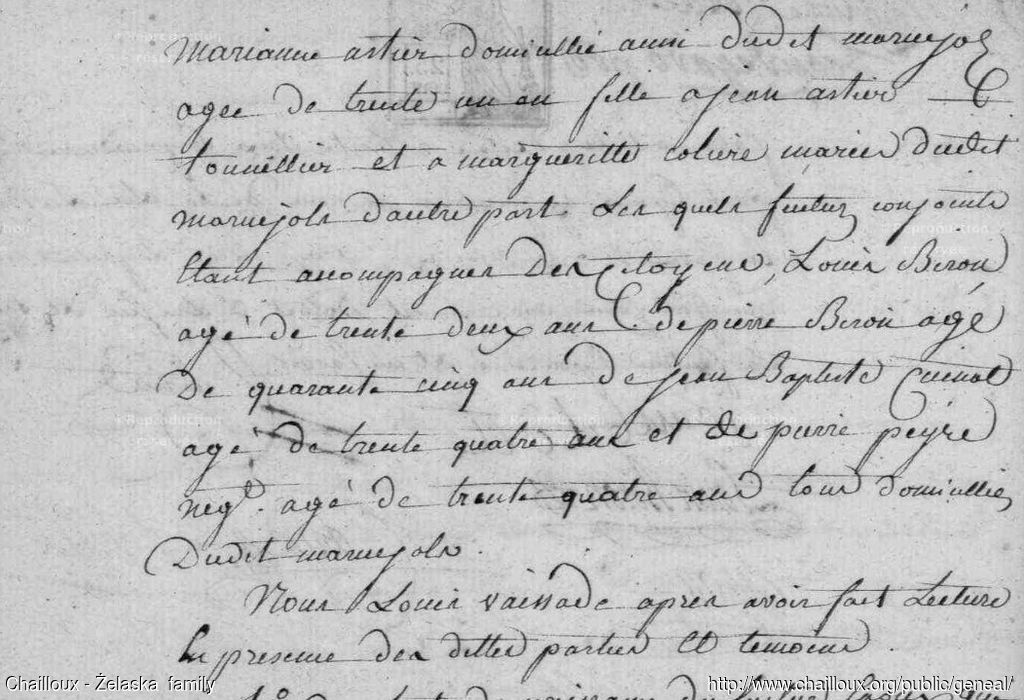 marianne astier domicillié aussi dudit maruejols
agée de trente un an fille a jean astier
tonnellier et a margueritte coliere mariés dudit
maruejols d'autre part. Les quels futurs conjoints
Etant accompagnes des citoyens, Louis Biron
agé de trente deux ans. de pierre Biron agé
De quarante cinq ans de jean Baptiste
agé de trente quatre ans et de pierre peyre
negt. agé de trente quatre ans tous domicilliés
Dudit maruejols.
Nous Louis vaissade apres avoir fait Lecture
En presence des dittes parties Et temoins.
Chailloux - Żelaska family
http://www.chailloux.org/public/geneal/